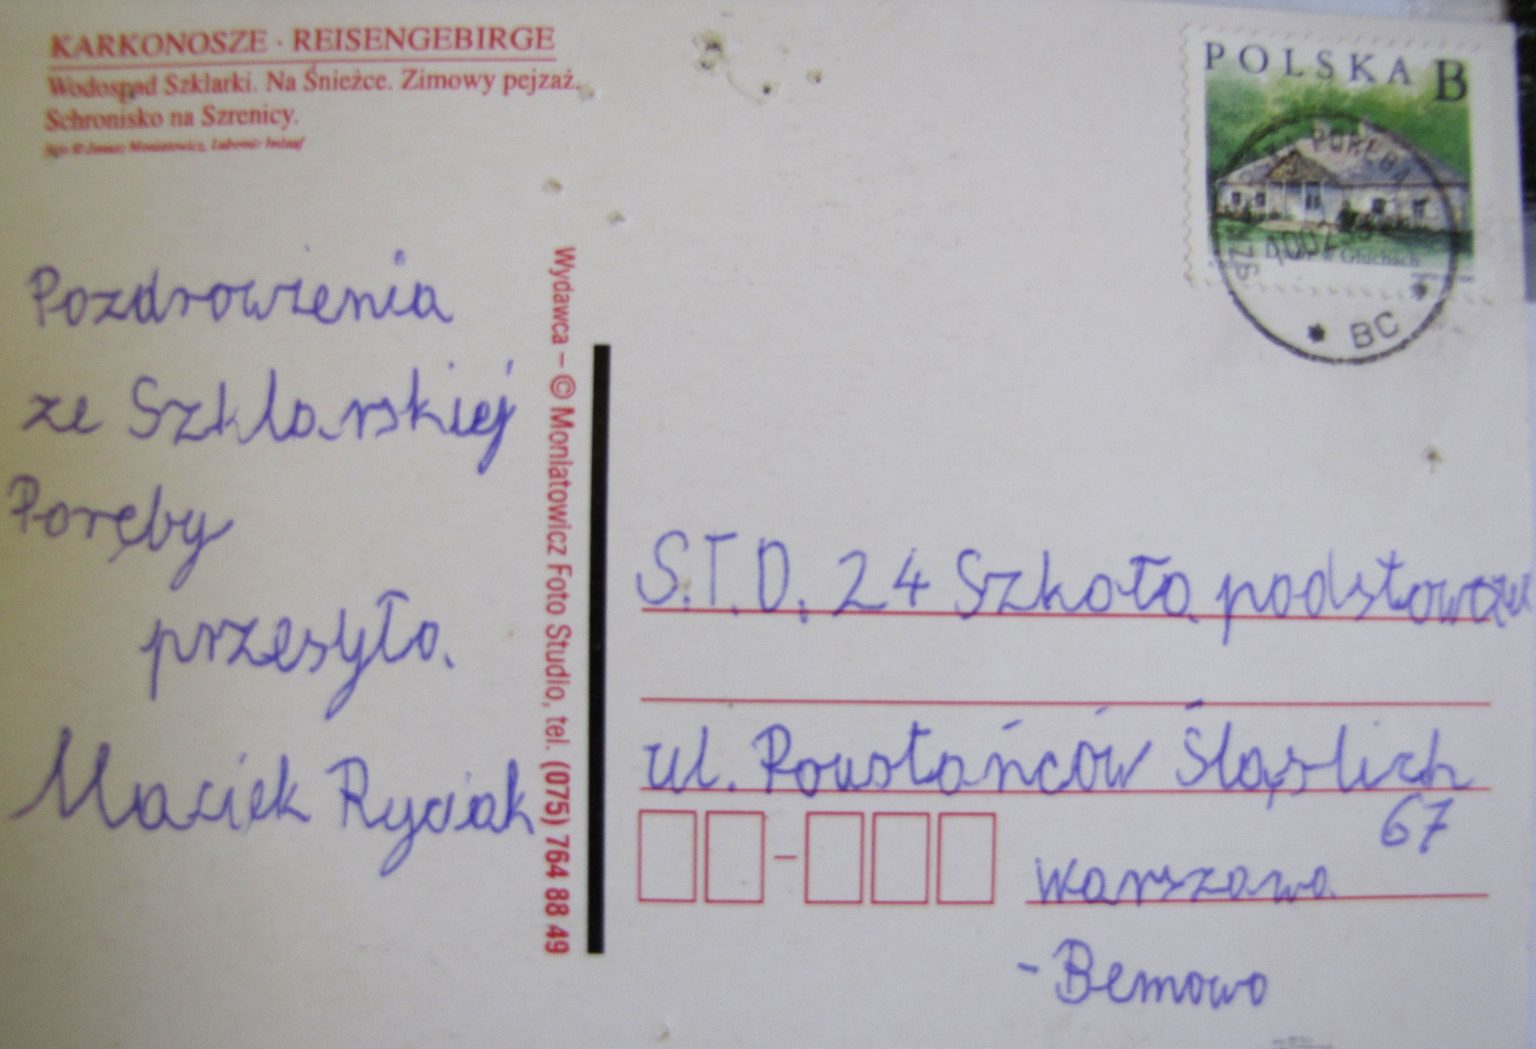 KARKONOSZE · REISENGEBIRGE
Wodospad Szklarki. Na Śnieżce. Zimowy pejzaż.
Schronisko na Szrenicy.
POLSKA B
PORĘBA
BC
Pozdrowienia
ze Szklarskiej
Poręby
przesyła.
Maciek Ryciak
Wydawca – © Moniatowicz Foto Studio, tel. (075) 764 88 49
S.T.D. 24 Szkoła podstawowa
ul. Powstańców Śląslich
67
Warszawa
- Bemowo